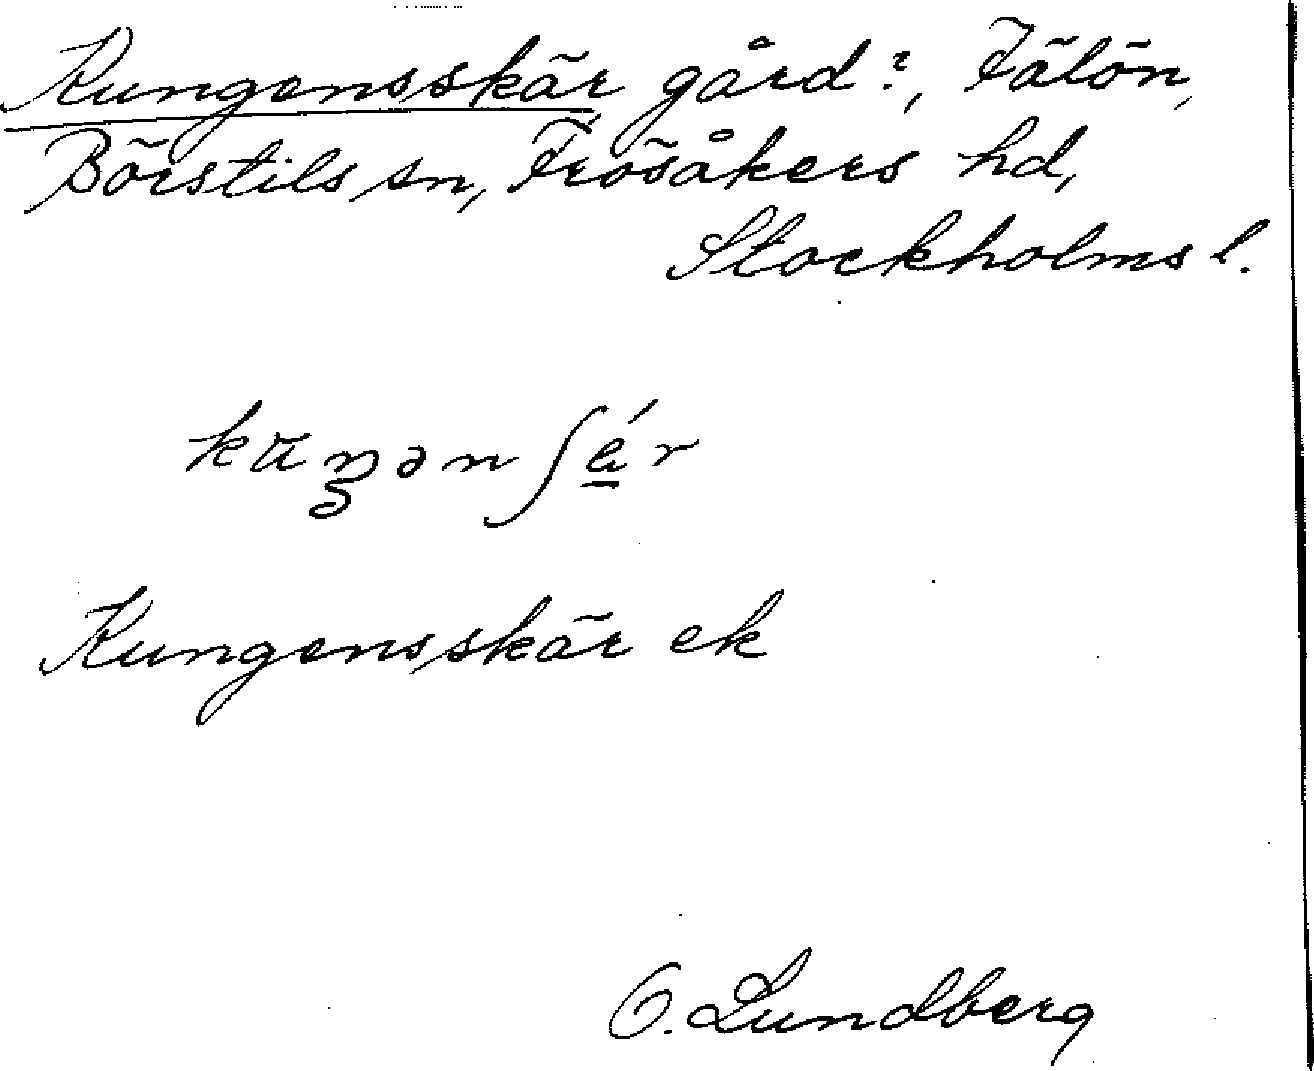 Kungensskär gård?, Fälön,
Börstils sn, Frösåkers hd,
Stockholms l.
Kungensskär ek
O. Lundberg